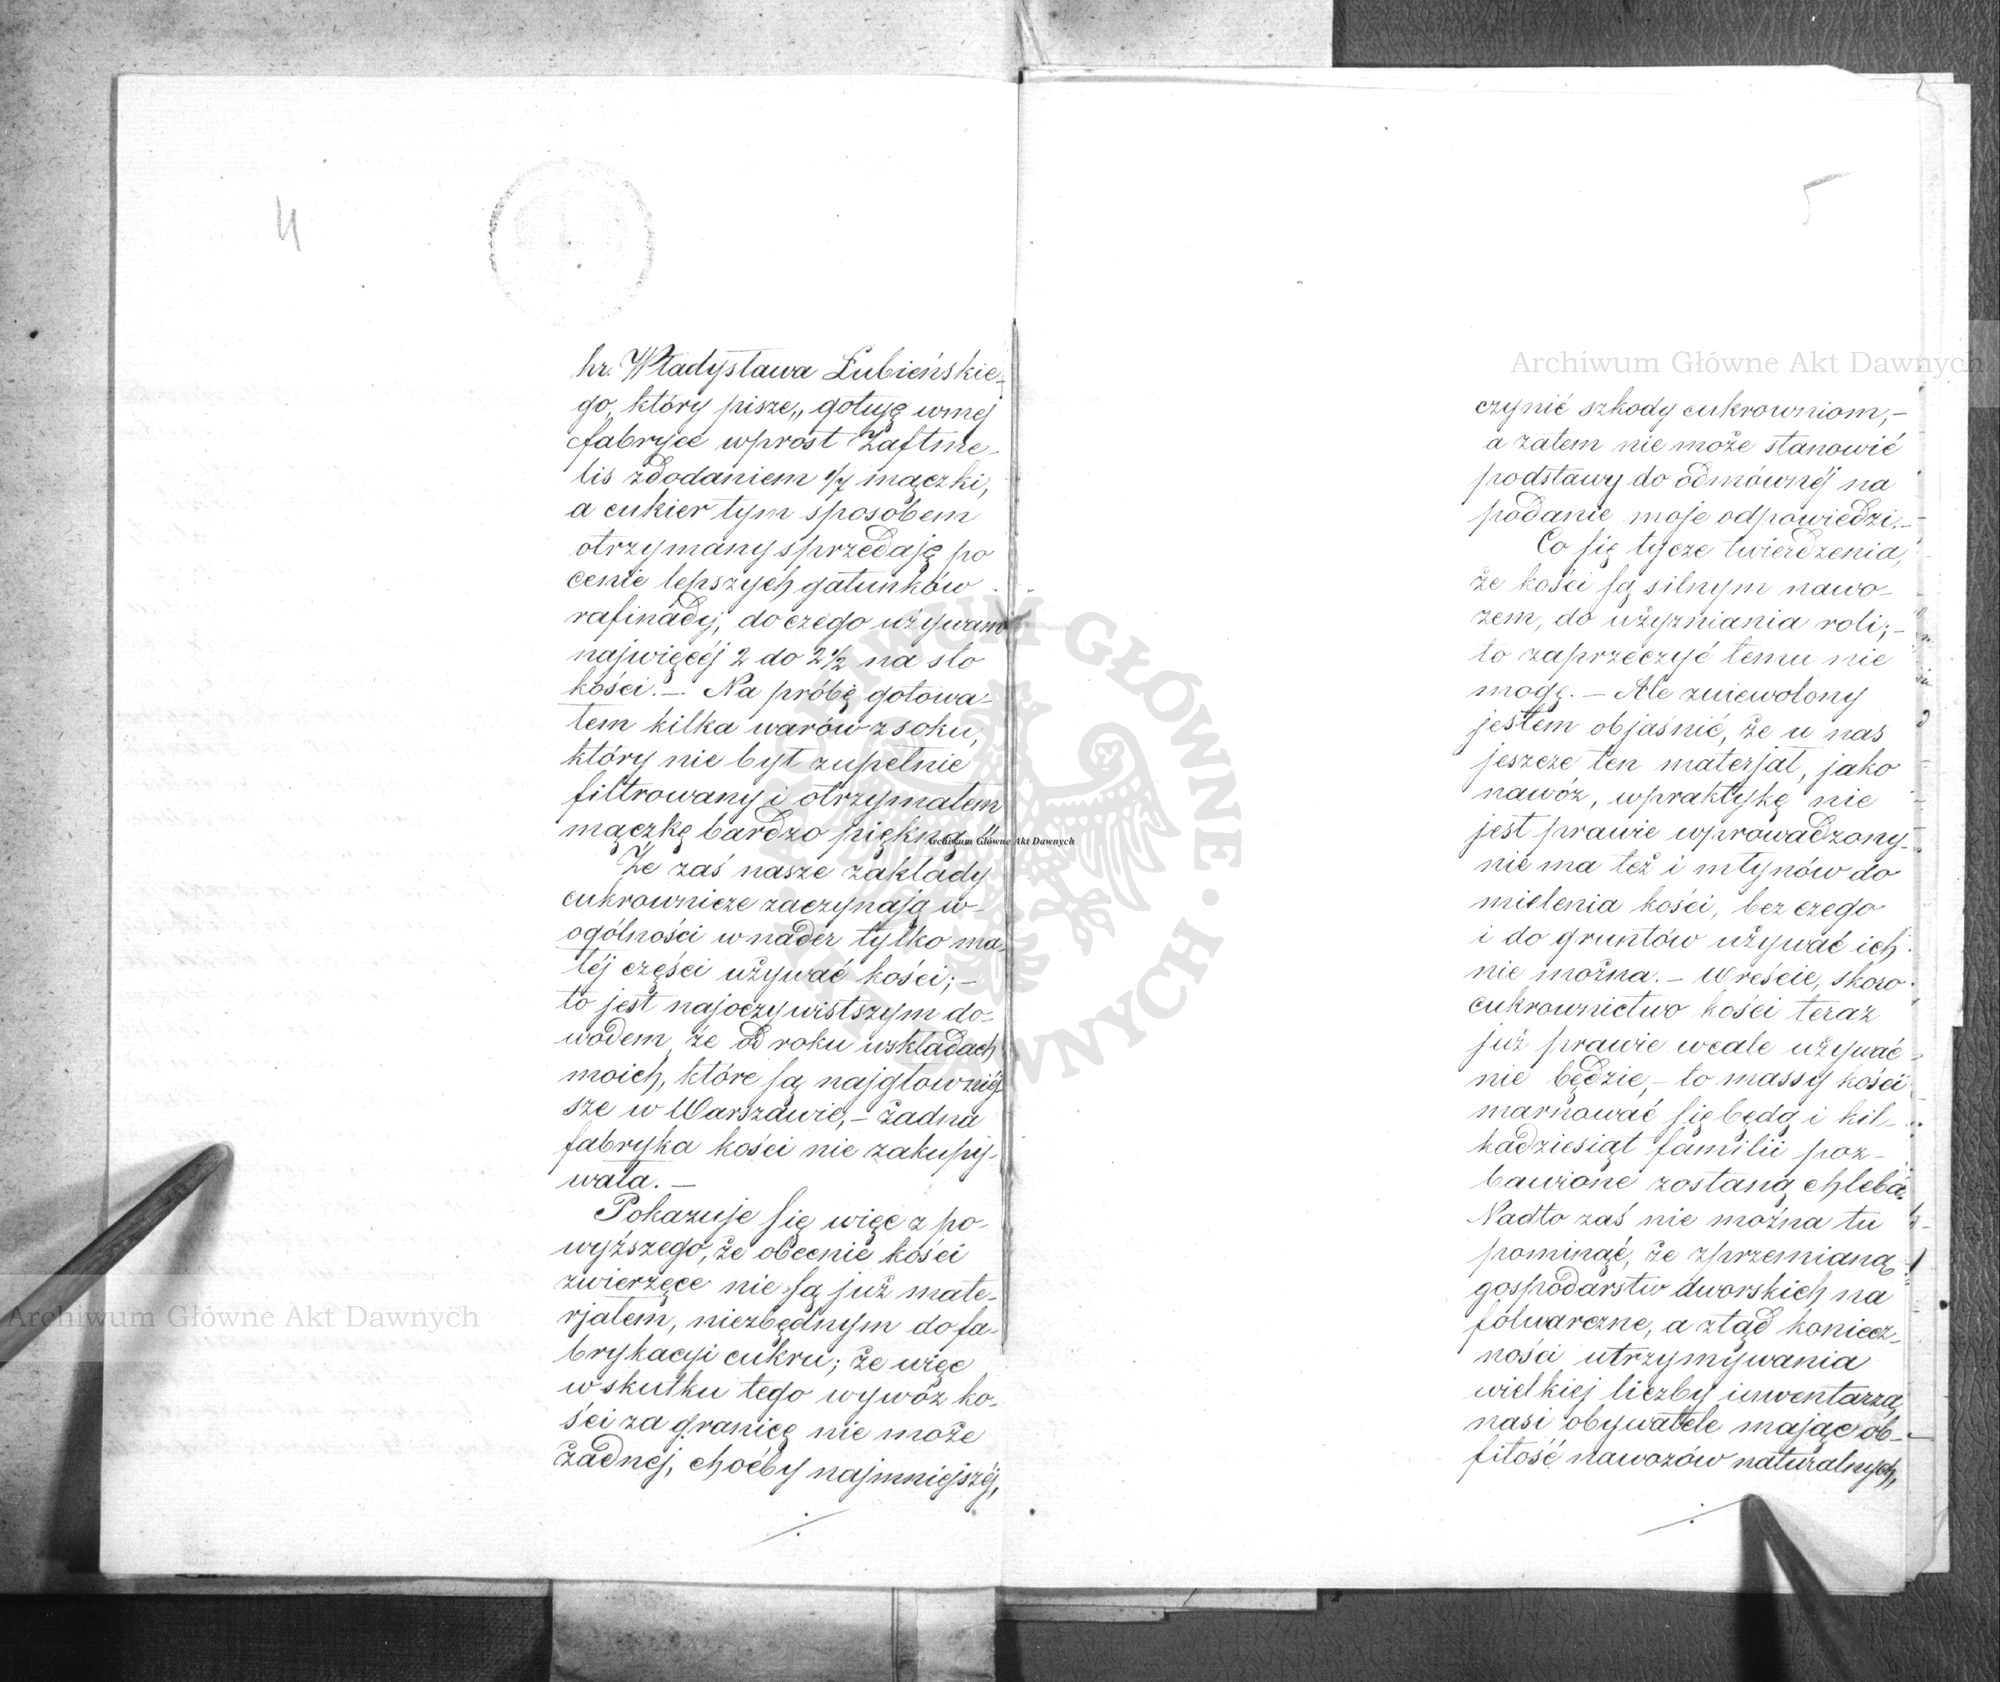 4
hr. Władysława Łubieńskie-
go, który pisze „gotuję w mej
fabryce wprost Zaftme-
lis z dodaniem 1/7 mączki,
a cukier tym sposobem
otrzymany sprzedaję po
cenie lepszych gatunków
rafinady; do czego używam
najwięcéj 2 do 2 1/2 na sto
kości. — Na próbę gotowa-
łem kilka warów z soku,
który nie był zupełnie
filtrowany i otrzymałem
mączkę bardzo piękną"
Że zaś nasze zakłady
cukrownicze zaczynają w-
ogólności w nader tylko ma-
łéj części używać kości; —
to jest najoczywistszym do-
wodem, że od roku w składach
moich, które są najgłowniéj-
sze w Warszawie, — żadna
fabryka kości nie zakupy-
wała. —
Pokazuje się więc z po-
wyższego, że obecnie kości
zwierzęce nie są już mate-
rjałem, niezbędnym do fa-
brykacyi cukru; że więc
w skutku tego wywóz ko-
ści za granicę nie może
żadnéj, choćby najmniejszéj,
5
czynić szkody cukrowniom, —
a zatem nie może stanowić
podstawy do odmównéj na
podanie moje odpowiedzi. —
Co się tycze twierdzenia,
że kości są silnym nawo-
zem, do użyzniania roli; —
to zaprzeczyć temu nie
mogę. — Ale zniewolony
jestem objaśnić, że u nas
jeszcze ten materjał, jako
nawóz, w praktykę nie
jest prawie wprowadzony
nie ma też i młynów do
mielenia kości, bez czego
i do gruntów używać ich
nie można. — Wreście, skoro
cukrownictwo kości teraz
już prawie wcale używać
nie będzie, — to massy kości
marnować się będą i kil-
kadziesiąt familii poz-
bawione zostaną chleba.
Nadto zaś nie można tu
pominąć, że z przemianą
gospodarstw dworskich na
folwarczne, a ztąd koniecz-
ności utrzymywania
wielkiej liczby inwentarza,
nasi obywatele mając ob-
fitość nawozów naturalnych,
Archiwum Główne Akt Dawnych
Archiwum Główne Akt Dawnych
Archiwum Główne Akt Dawnych
ARCHIWUM GŁÓWNE AKT DAWNYCH